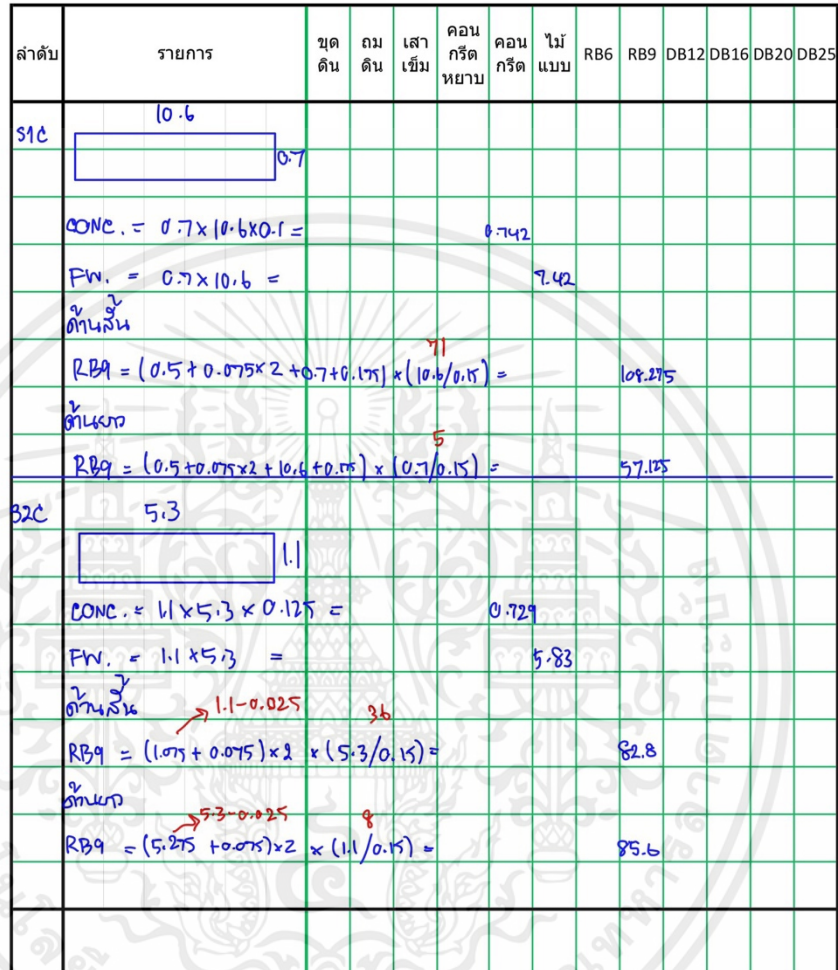 ลำดับ รายการ ขุดดิน ถมดิน เสาเข็ม คอนกรีตหยาบ คอนกรีต ไม้แบบ RB6 RB9 DB12 DB16 DB20 DB25
S1C
10.6
0.7
CONC. = 0.7 x 10.6 x 0.1 = 0.742
FW. = 0.7 x 10.6 = 7.42
ด้านสั้น
71
RB9 = (0.5 + 0.075 x 2 + 0.7 + 0.175) x (10.6/0.15) = 108.275
ด้านยาว
5
RB9 = (0.5 + 0.075 x 2 + 10.6 + 0.175) x (0.7/0.15) = 57.125
B2C
5.3
1.1
CONC. = 1.1 x 5.3 x 0.125 = 0.729
FW. = 1.1 x 5.3 = 5.83
ด้านสั้น
1.1-0.025 36
RB9 = (1.075 + 0.075) x 2 x (5.3/0.15) = 82.8
ด้านยาว
5.3-0.025 8
RB9 = (5.275 + 0.075) x 2 x (1.1/0.15) = 85.6